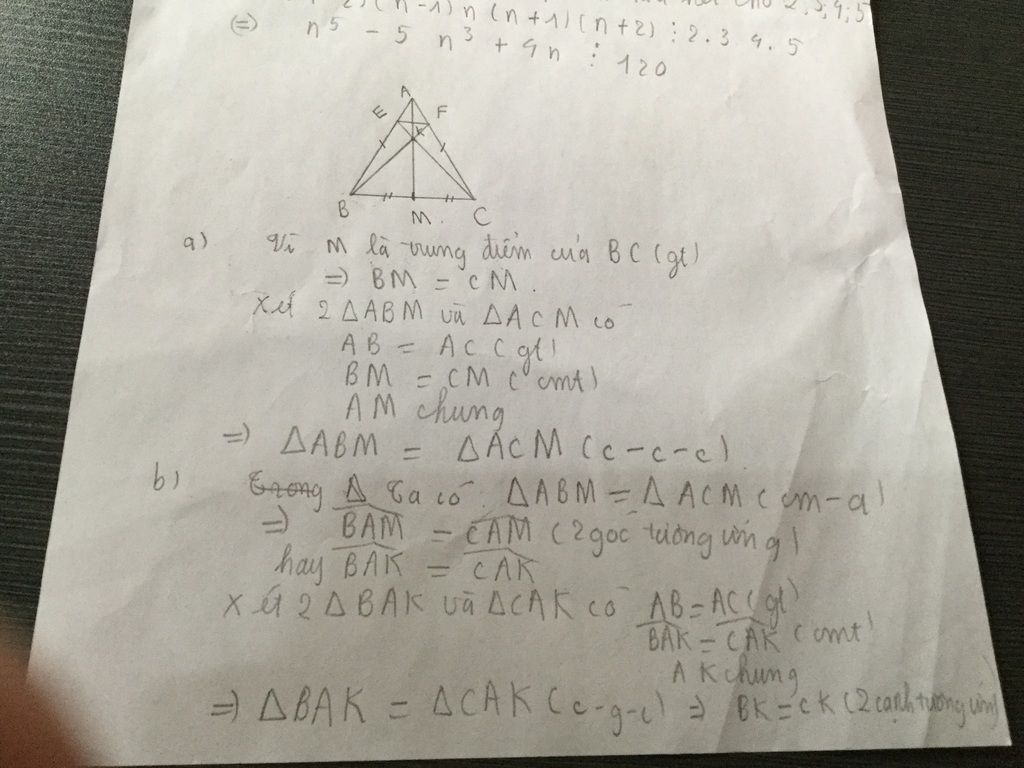 2) (n-1) n (n+1) (n+2) ⋮ 2.3 4.5
(=) n⁵ - 5 n³ + 4n ⋮ 120
A
E F
K
B M C
a) Vì M là trung điểm của BC (gt)
=) BM = CM.
Xét 2 ΔABM và ΔACM có
AB = AC (gt)
BM = CM (cmt)
AM chung
=) ΔABM = ΔACM (c-c-c)
b) Trong Δ Ta có ΔABM = ΔACM (cm-a)
=) BAM = CAM (2 góc tương ứng)
hay BAK = CAK
Xét 2 ΔBAK và ΔCAK có AB = AC (gt)
BAK = CAK (cmt)
AK chung
=) ΔBAK = ΔCAK (c-g-c) =) BK = CK (2 cạnh tương ứng)